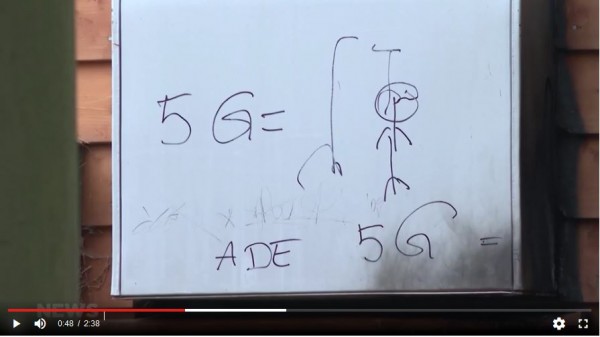 5G=
ADE 5G =
NEWS
0:48 / 2:38